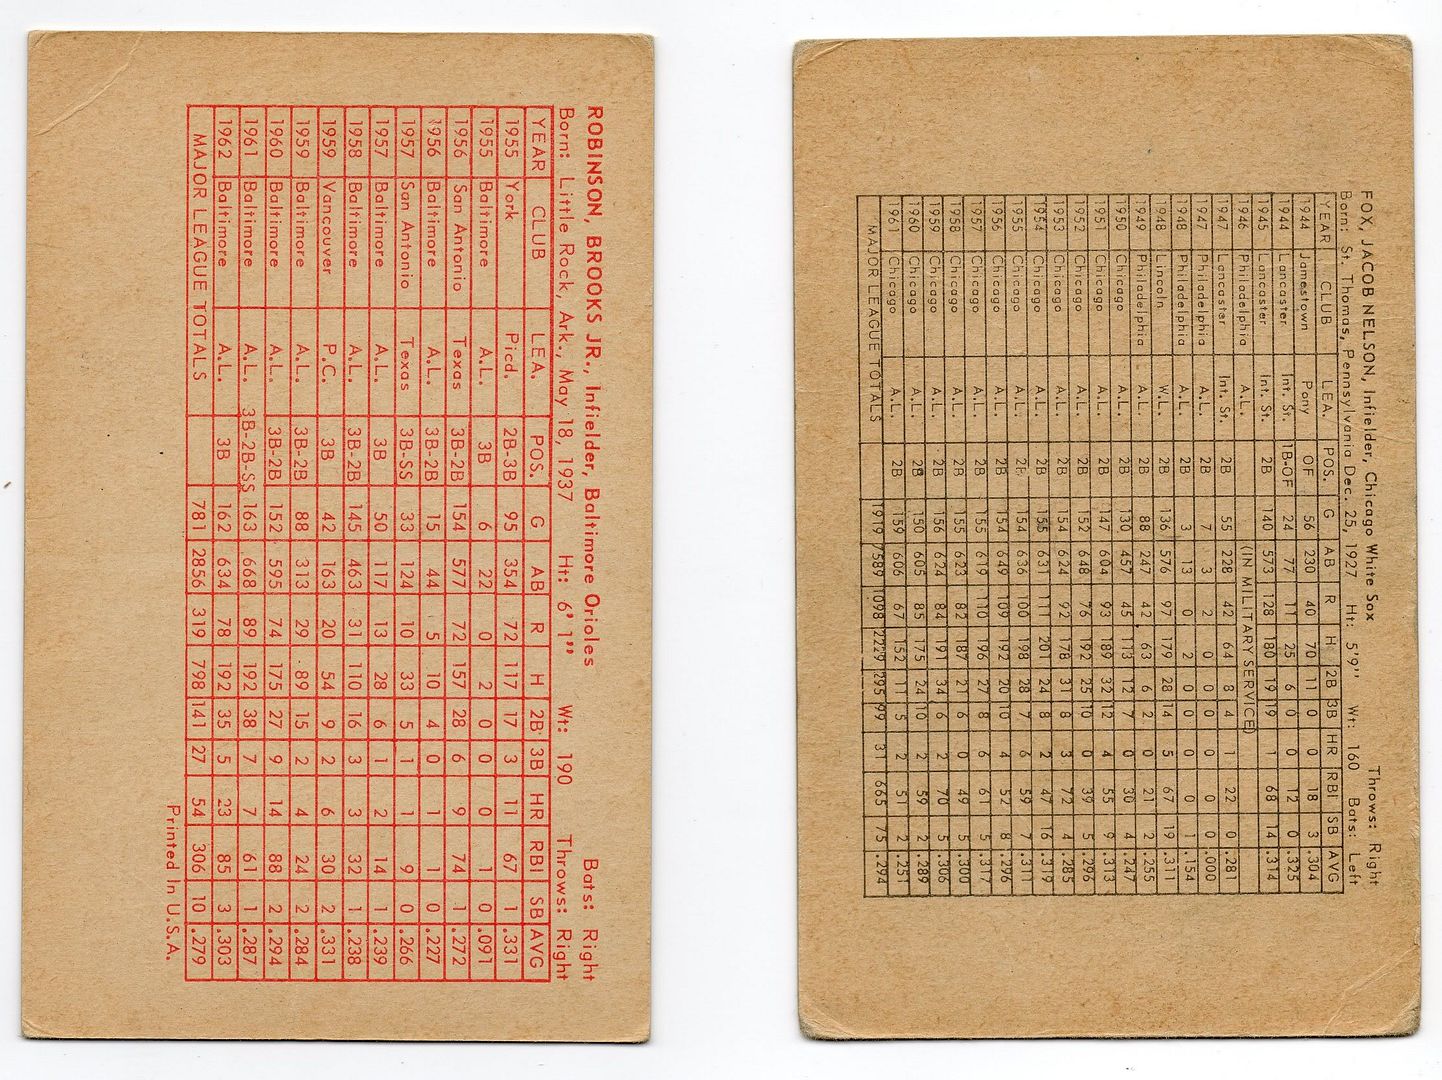 ROBINSON, BROOKS JR., Infielder, Baltimore Orioles Bats: Right
Born: Little Rock, Ark., May 18, 1937 Ht: 6' 1" Wt: 190 Throws: Right
YEAR CLUB LEA. POS. G AB R H 2B 3B HR RBI SB AVG
1955 York Picd. 2B-3B 95 354 72 117 17 3 11 67 1 .331
1955 Baltimore A.L. 3B 6 22 0 2 0 0 0 1 0 .091
1956 San Antonio Texas 3B-2B 154 577 72 157 28 6 9 74 1 .272
1956 Baltimore A.L. 3B-2B 15 44 5 10 4 0 1 1 0 .227
1957 San Antonio Texas 3B-SS 33 124 10 33 5 1 1 9 0 .266
1957 Baltimore A.L. 3B 50 117 13 28 6 1 2 14 1 .239
1958 Baltimore A.L. 3B-2B 145 463 31 110 16 3 3 32 1 .238
1959 Vancouver P.C. 3B 42 163 20 54 9 2 6 30 2 .331
1959 Baltimore A.L. 3B-2B 88 313 29 89 15 2 4 24 2 .284
1960 Baltimore A.L. 3B-2B 152 595 74 175 27 9 14 88 2 .294
1961 Baltimore A.L. 3B-2B-SS 163 668 89 192 38 7 7 61 1 .287
1962 Baltimore A.L. 3B 162 634 78 192 35 5 23 85 3 .303
MAJOR LEAGUE TOTALS 781 2856 319 798 141 27 54 306 10 .279
Printed In U.S.A.
FOX, JACOB NELSON, Infielder, Chicago White Sox Throws: Right
Born: St. Thomas, Pennsylvania Dec. 25, 1927 Ht: 5'9" Wt: 160 Bats: Left
YEAR CLUB LEA. POS. G AB R H 2B 3B HR RBI SB AVG
1944 Jamestown Pony OF 56 230 40 70 11 0 0 18 3 .304
1944 Lancaster Int. St. 1B-OF 24 77 11 25 6 0 0 12 0 .325
1945 Lancaster Int. St. 2B 140 573 128 180 19 19 1 68 14 .314
1946 Philadelphia A.L. (IN MILITARY SERVICE)
1947 Lancaster Int. St. 2B 55 228 42 64 8 4 1 22 0 .281
1947 Philadelphia A.L. 2B 7 3 2 0 0 0 0 0 0 .000
1948 Philadelphia A.L. 2B 3 13 0 2 0 0 0 0 1 .154
1948 Lincoln W.L. 2B 136 576 97 179 28 14 5 67 19 .311
1949 Philadelphia A.L. 2B 88 247 42 63 6 2 0 21 2 .255
1950 Chicago A.L. 2B 130 457 45 113 12 7 0 30 4 .247
1951 Chicago A.L. 2B 147 604 93 189 32 12 4 55 9 .313
1952 Chicago A.L. 2B 152 648 76 192 25 10 0 39 5 .296
1953 Chicago A.L. 2B 154 624 92 178 31 8 3 72 4 .285
1954 Chicago A.L. 2B 155 631 111 201 24 8 2 47 16 .319
1955 Chicago A.L. 2B 154 636 100 198 28 7 6 59 7 .311
1956 Chicago A.L. 2B 154 649 109 192 20 10 4 52 8 .296
1957 Chicago A.L. 2B 155 619 110 196 27 8 6 61 5 .317
1958 Chicago A.L. 2B 155 623 82 187 21 6 0 49 5 .300
1959 Chicago A.L. 2B 156 624 84 191 34 6 2 70 5 .306
1960 Chicago A.L. 2B 150 605 85 175 24 10 2 59 2 .289
1961 Chicago A.L. 2B 159 606 67 152 11 5 2 51 2 .251
MAJOR LEAGUE TOTALS 1919 7589 1098 2229 295 99 31 665 75 .294